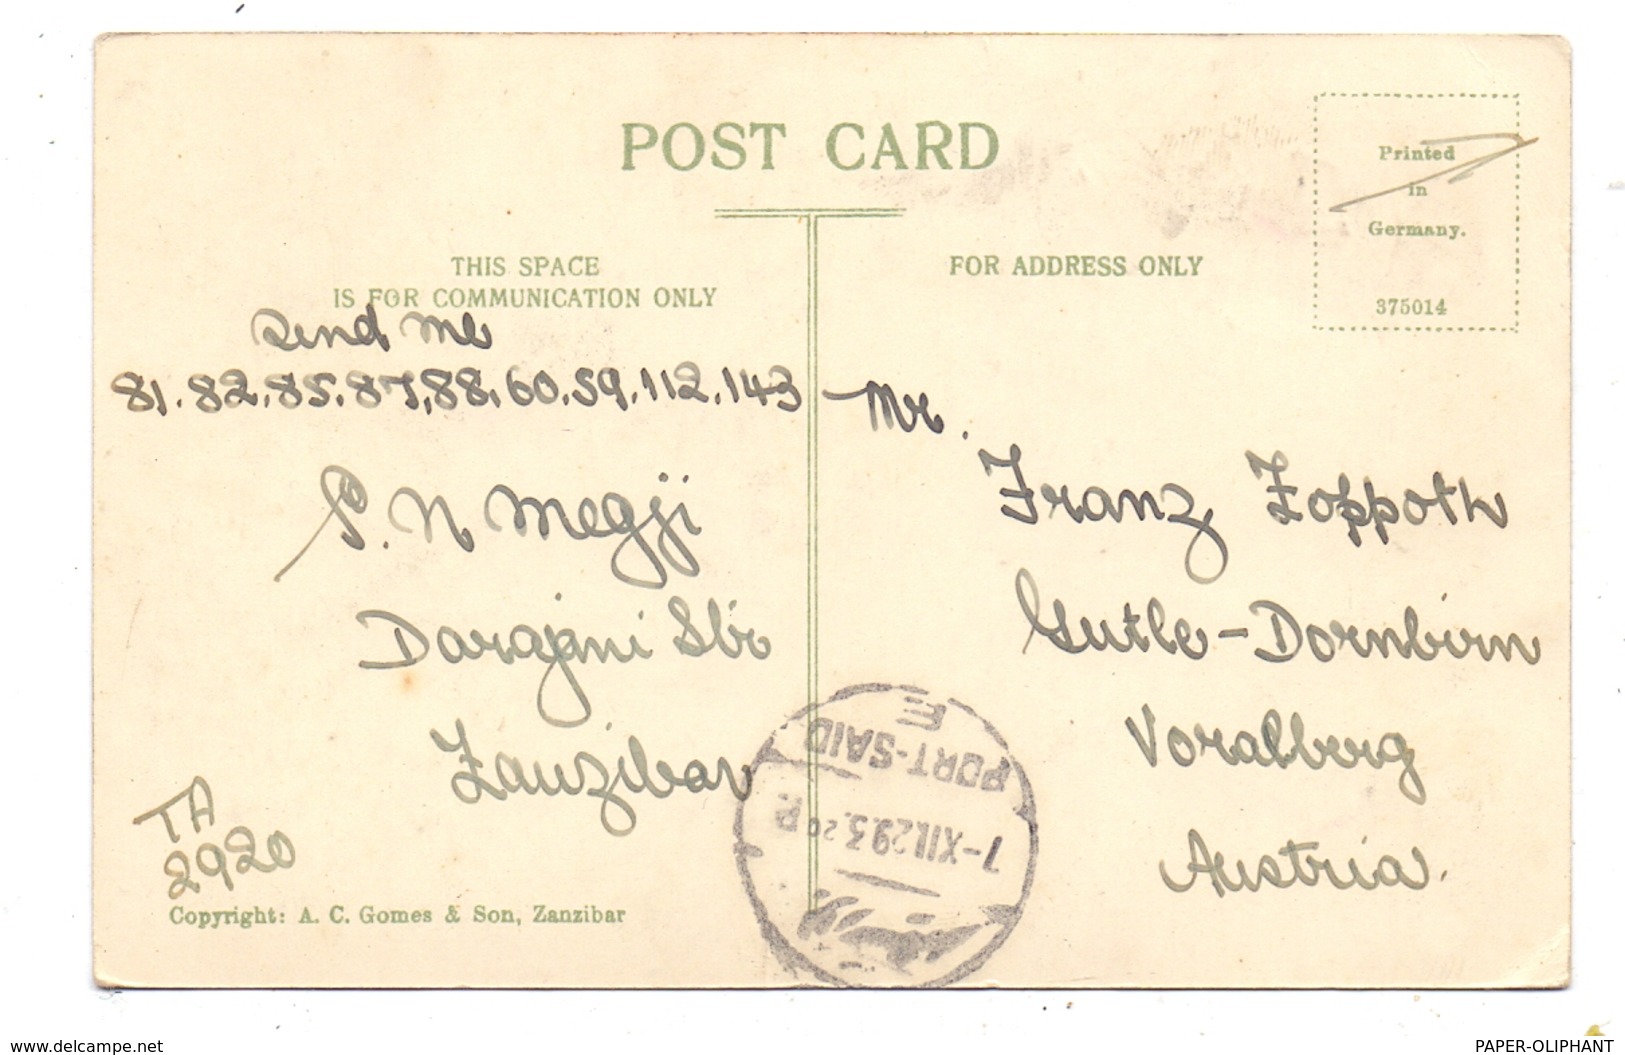 POST CARD
THIS SPACE
IS FOR COMMUNICATION ONLY
send me
81.82.85.87.88.60.59.112.143
P. N Megji
Darajani Str
Zanzibar
TA
2920
Copyright: A. C. Gomes & Son, Zanzibar
FOR ADDRESS ONLY
Printed
in
Germany.
375014
Mr.
Franz Zoppoth
Gutle-Dornbirn
Voralberg
Austria.
E
PORT-SAID
7-XII.29.3.20 P.
www.delcampe.net
PAPER-OLIPHANT